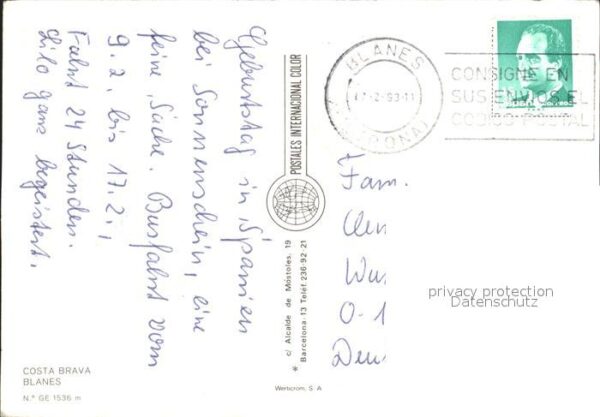 Geburtstag in Spanien
bei Sonnenschein, eine
feine Sache. Busfahrt vom
9.2. bis 17.2.,
Fahrt 24 Stunden.
Lilo ganz begeistert.
COSTA BRAVA
BLANES
N.º GE 1536 m
POSTALES INTERNACIONAL COLOR
c/ Alcalde de Móstoles, 19
* Barcelona-13 Teléf. 236-92-21
Wertcrom, S. A
BLANES
-2-93-11
CONSIGNE EN
SUS ENVIOS EL
CODIGO POSTAL
Fam.
O-1
privacy protection
Datenschutz